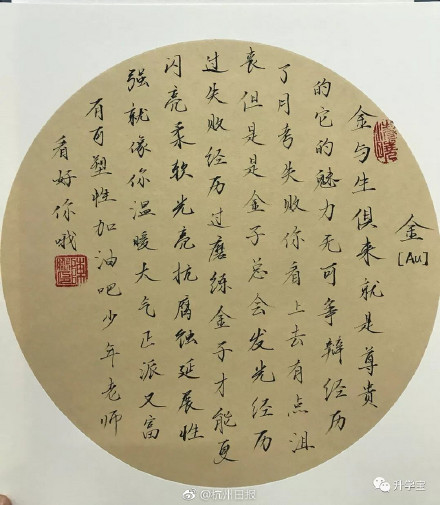 金
[Au]
金与生俱来就是尊贵
的它的魅力无可争辩经历
了月考失败你看上去有点沮
丧但是是金子总会发光经历
过失败经历过磨练金子才能更
闪亮柔软光亮抗腐蚀延展性
强就像你温暖大气正派又富
有可塑性加油吧少年老师
看好你哦
@杭州日报
升学宝